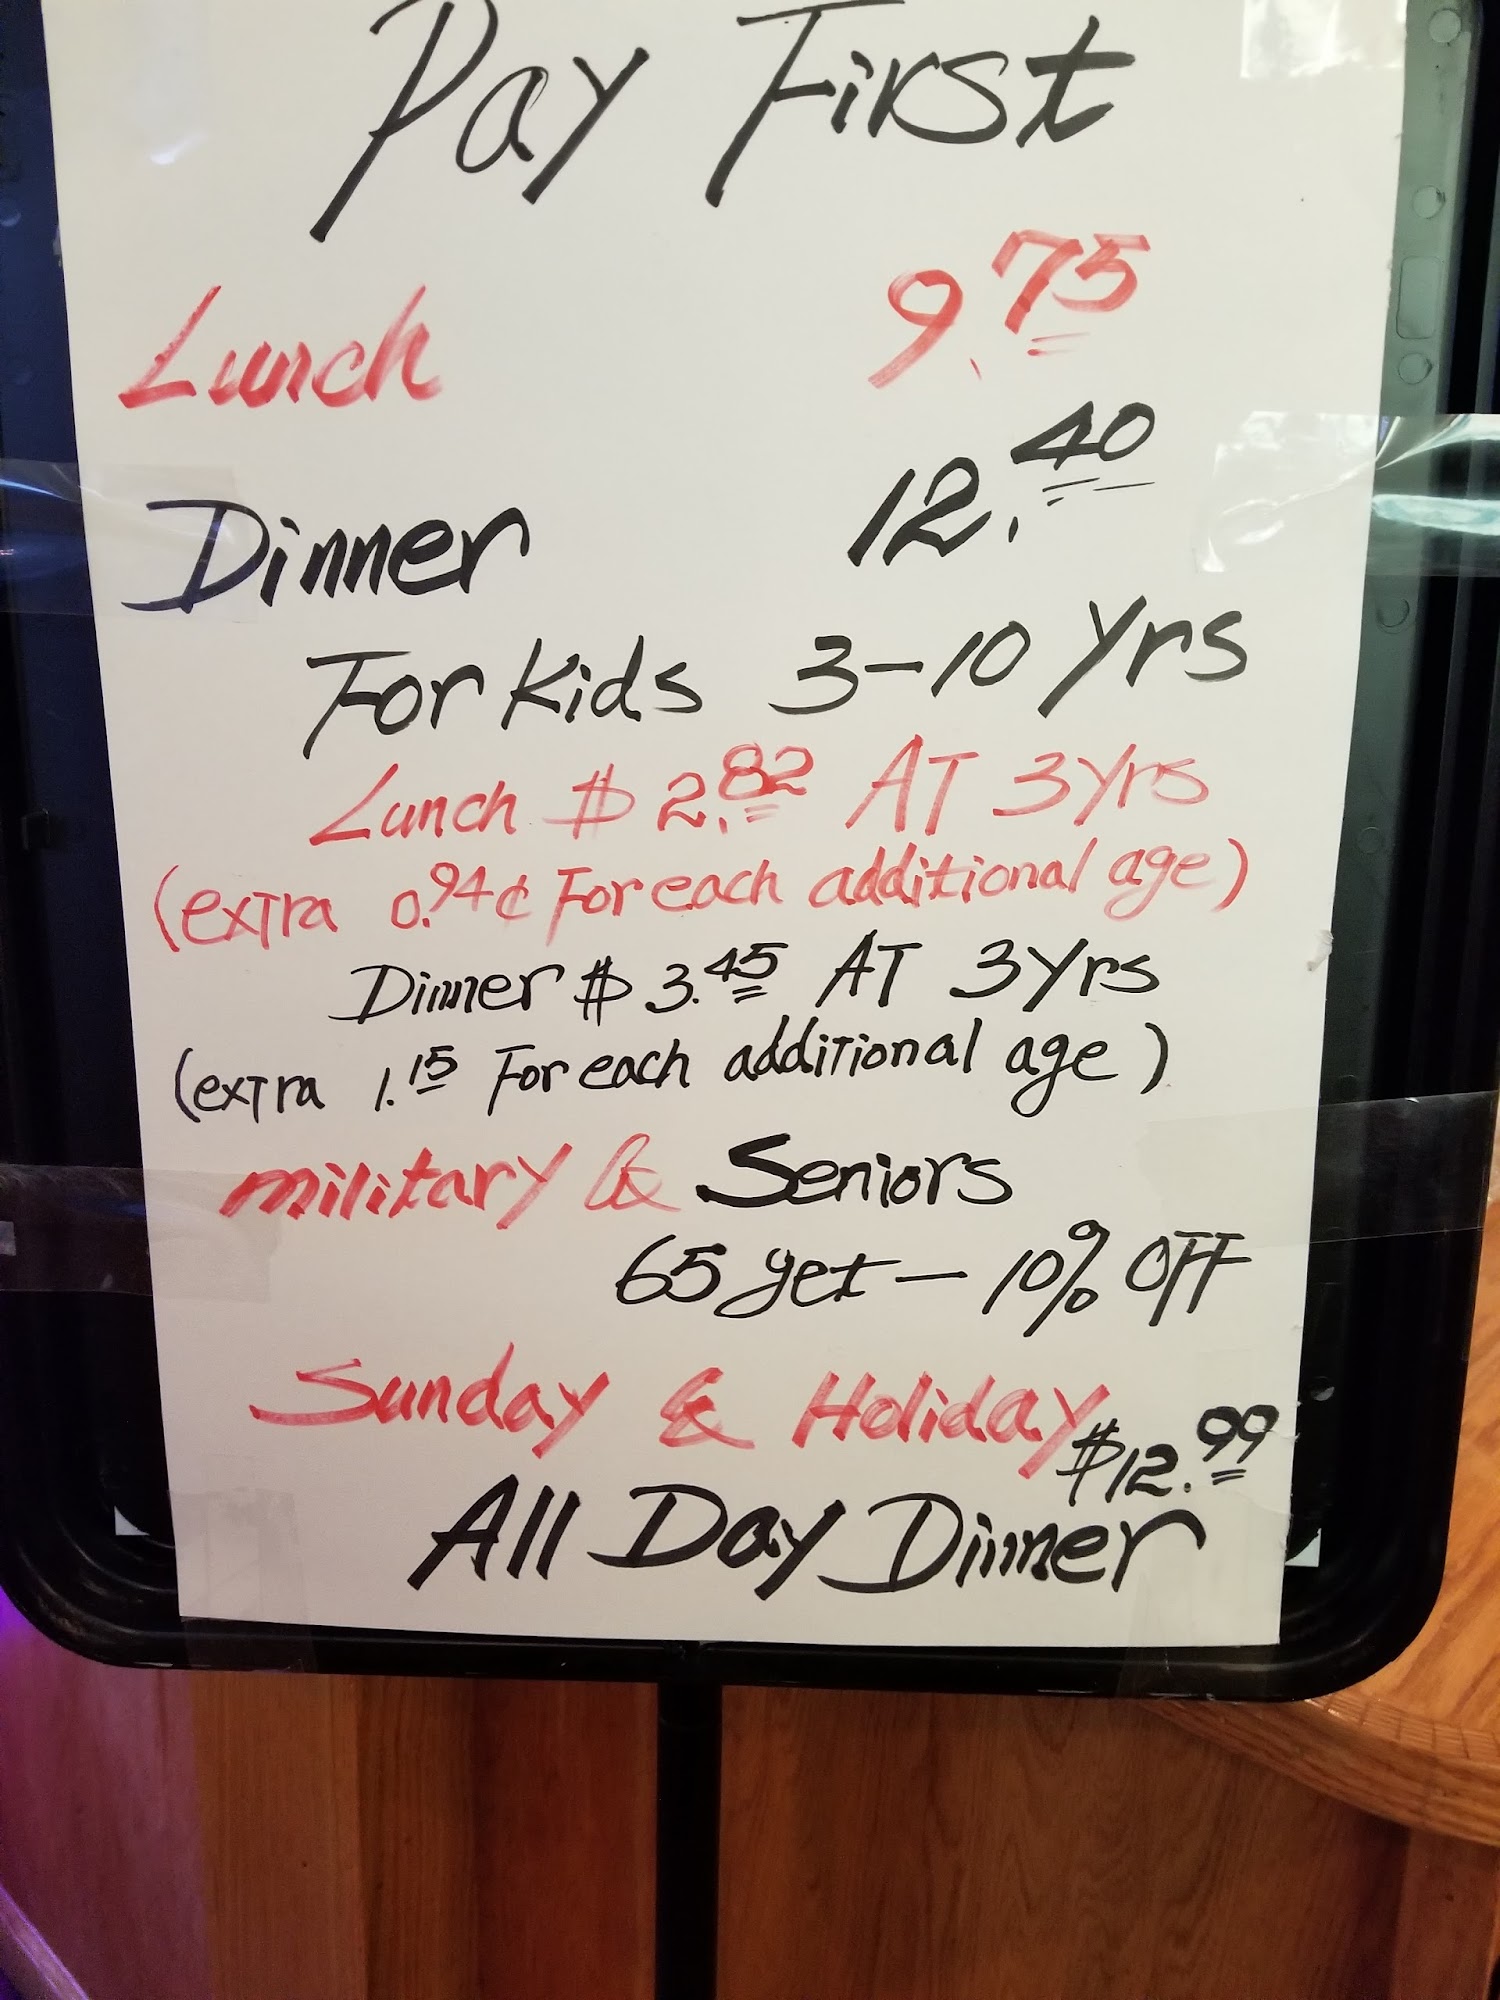 Pay First
Lunch 9.75
Dinner 12.40
For Kids 3-10 Yrs
Lunch $2.82 AT 3 Yrs
(extra 0.94¢ For each additional age)
Dinner $3.45 AT 3 Yrs
(extra 1.15 For each additional age)
military & Seniors
65 get - 10% OFF
Sunday & Holiday $12.99
All Day Dinner